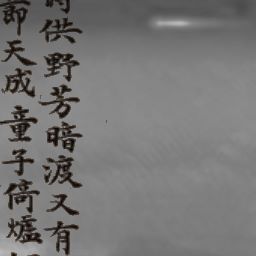 時供野芳暗渡又有
節天成童子倚爐